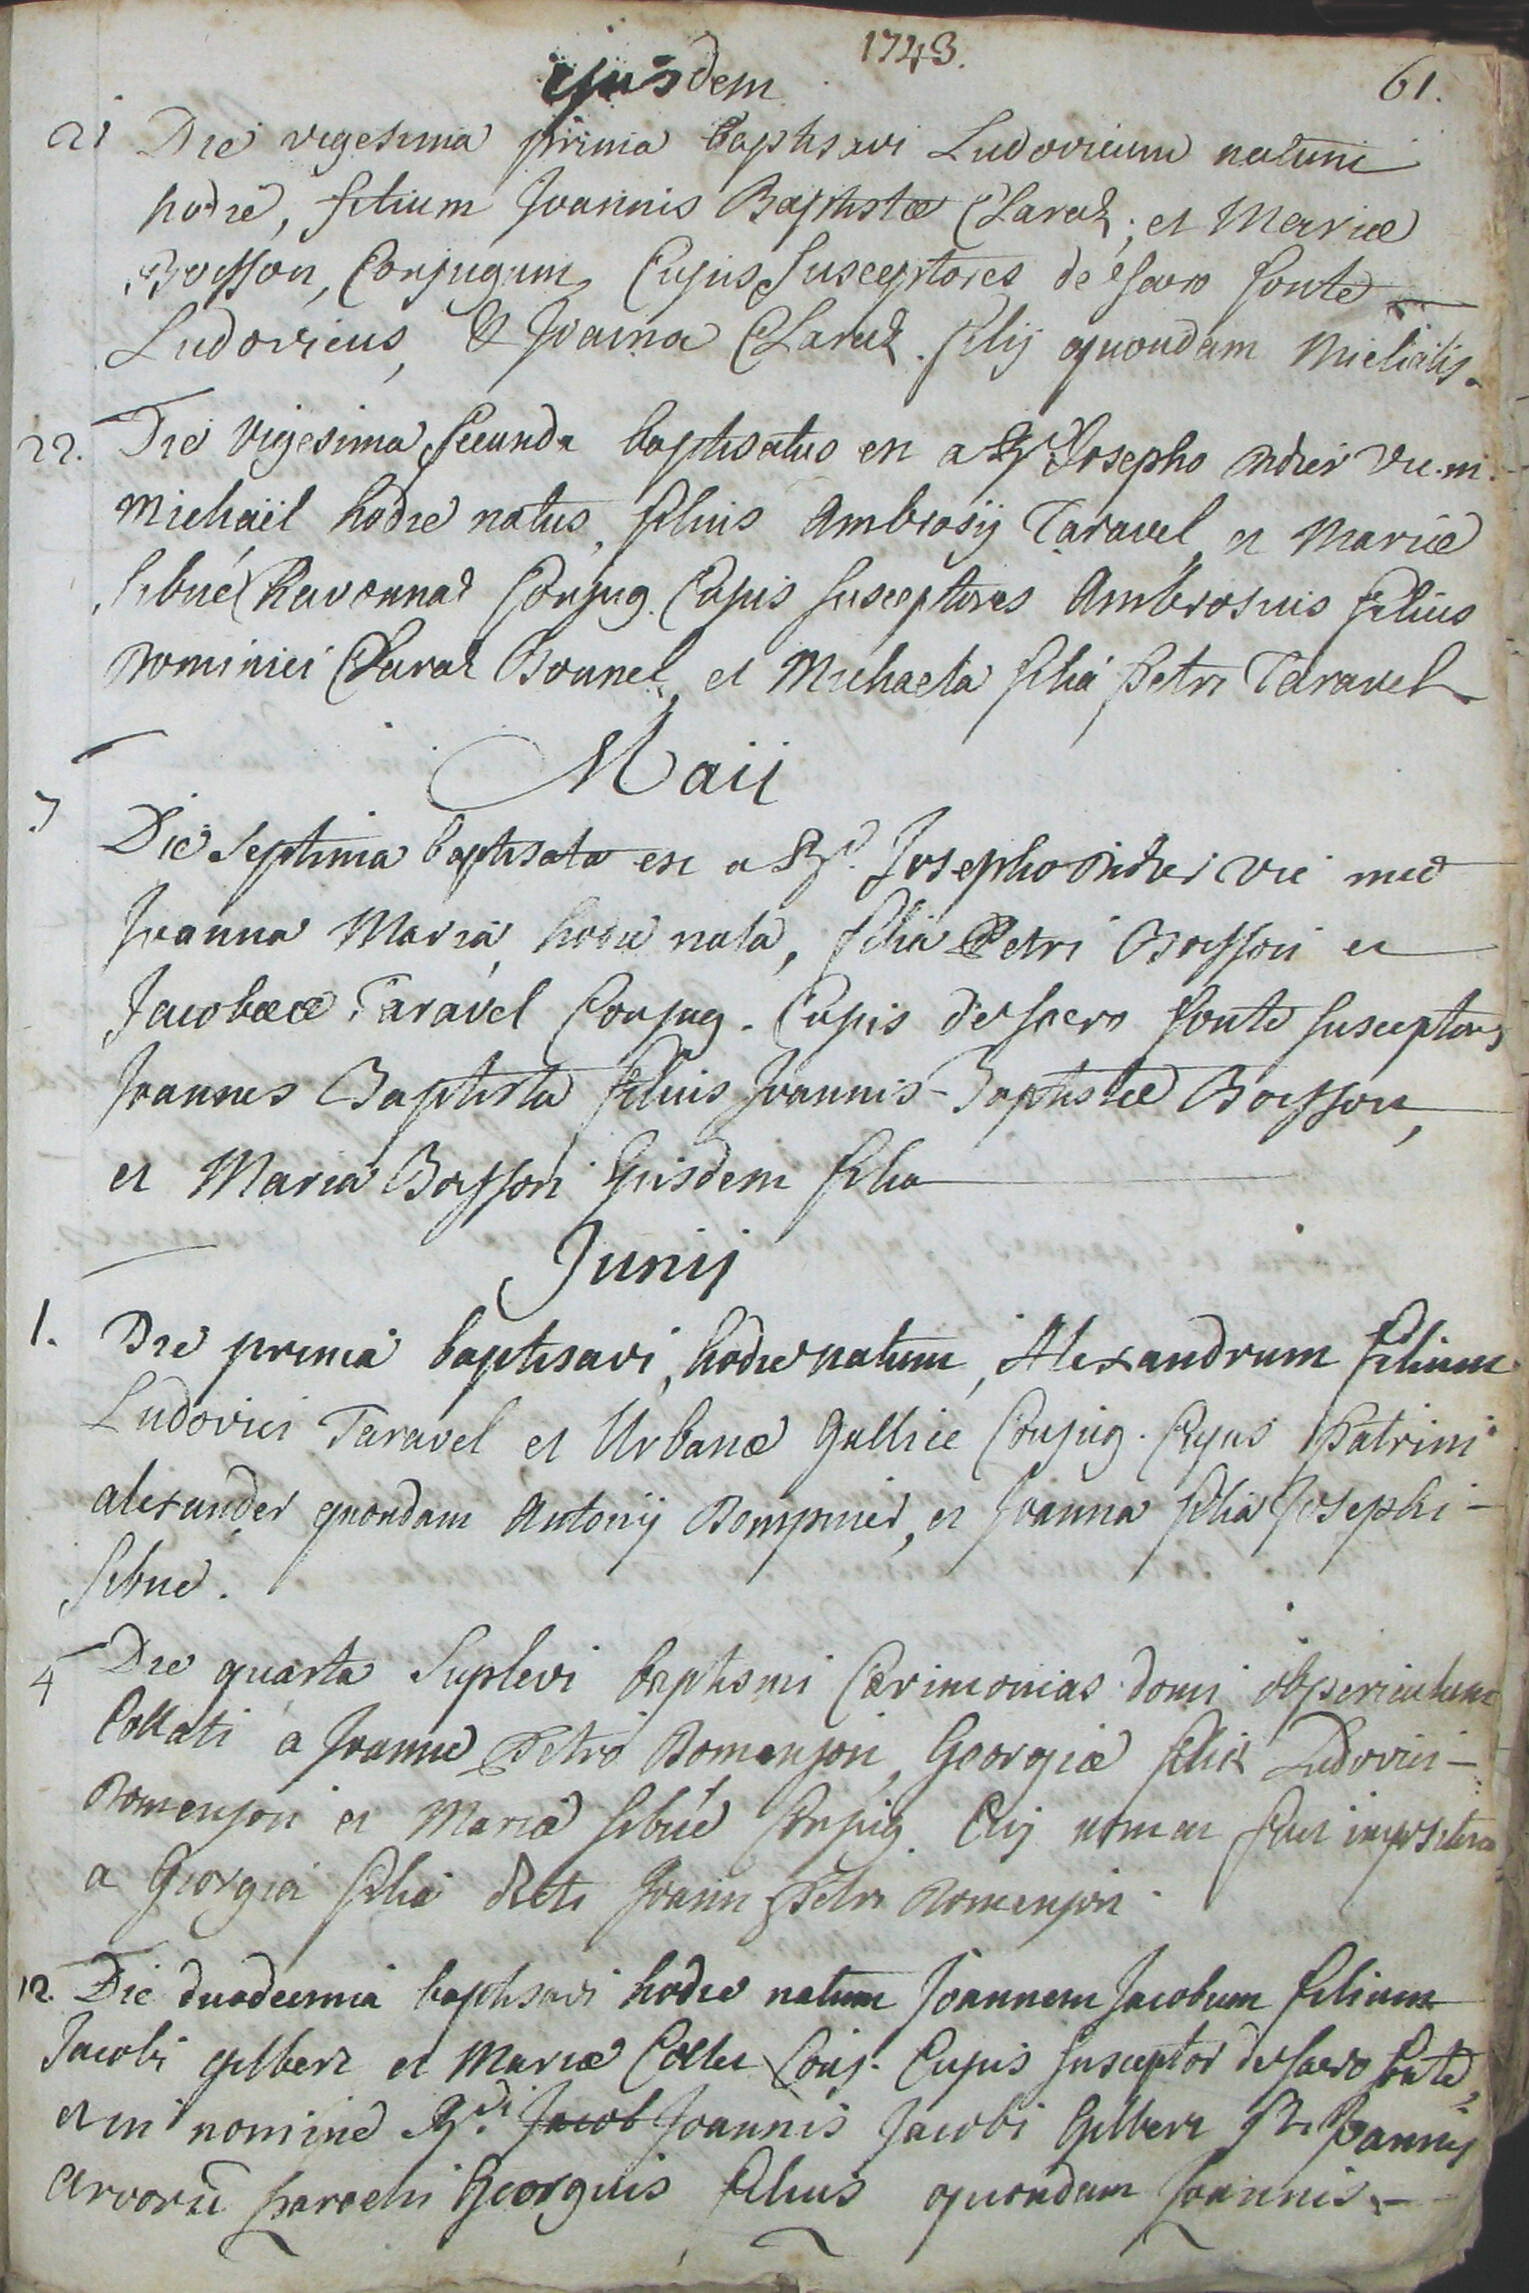 1743.
ejusdem 61.
21 Die vigesima prima baptisavi Ludovicum natum
hodie, filium Joannis Baptistæ Claraz, et Mariæ
Boisson, Conjugum, Cujus Susceptores de sacro fonte
Ludovicus, & Joanna Claraz. filij quondam Michælis.
22. Die vigesima secunda baptisatus est a Rdo Josepho Didier vic. m.
Michaël hodie natus, filius Ambrosij Taravel et Mariæ
Sibué Ravonnaz Conjug. Cujus susceptores Ambrosius filius
Dominici Claraz Bonnel, et Michaela filia petri Taravel
Maii
7 Die Septima baptisata est a Rdo. Josepho Didier vic meo
Joanna Maria, hodie nata, filia Petri Boisson et
Jacobææ Taravel Conjug. Cujus de sacro fonte susceptores
Joannes Baptista filius Joannis-Baptistæ Boisson,
et Maria Boisson Ejusdem filia
Junij
1. Die prima baptisavi, hodie natum, Alexandrum filium
Ludovici Taravel et Urbanæ Gallice Conjug. Cujus Patrini
alexander quondam Antonij Dompnier, et Joanna filia Josephi
Sibue.
4 Die quarta Suplevi baptismi Cærimonias domi ob periculum
Collati a Joanne Petro Domenjon, Georgiæ filiæ Ludovici
Domenjon et Mariæ Sibué Conjug. Cui nomen fuit impositum
a Georgia filia dicti Joann Petri Domenjon.
12. Die duodecima baptisavi hodie natum Joannem Jacobum filium
Jacobi gilbert et Mariæ Collet Conj. Cujus susceptor de sacro fonte,
et in nomine Rdi. Jacob Joannis Jacobi Gilbert Sti Joannis
Arvorū parochi Georgius filius quondam Joannis.